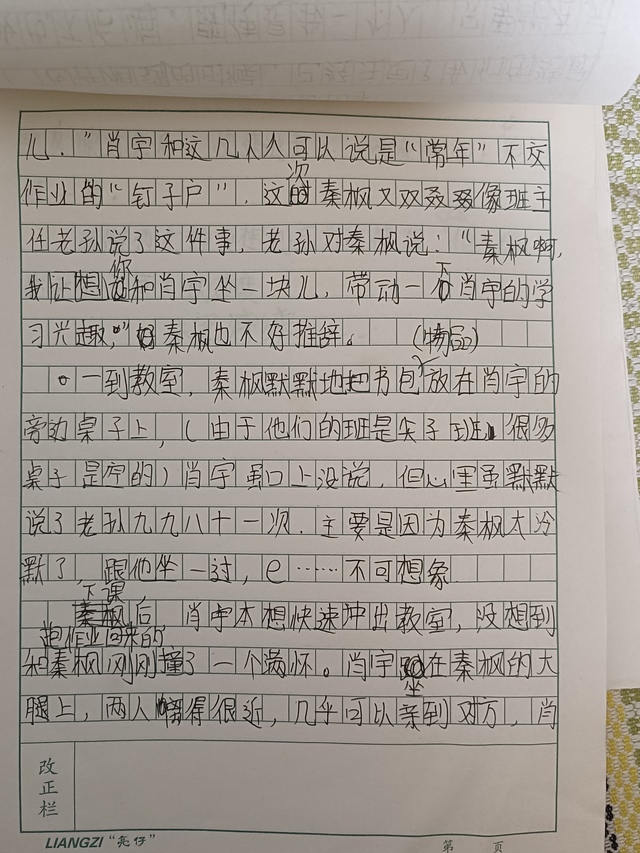 儿."肖宇和这几人人可以说是"常年"不交
作业的"钉子户".这次秦枫又双叒叕像班主
任老孙说了这件事,老孙对秦枫说:"秦枫啊,
我让想你和肖宇坐一块儿,带动一下肖宇的学
习兴趣,"秦枫也不好推辞。
(物品)
。一到教室,秦枫默默地把书包放在肖宇的
旁边桌子上,(由于他们的班是尖子班,很多
桌子是空的)肖宇虽口上没说,但心里虽默默
说了老孙九九八十一次.主要是因为秦枫太冷
默了,跟他坐一过,e……不可想象
下课后 肖宇本想快速冲出教室,没想到
抱作业回来的
和秦枫刚刚撞了一个满怀。肖宇坐在秦枫的大
腿上,两人得很近,几乎可以亲到对方,肖
改正栏
LIANGZI"亮仔"
第 页